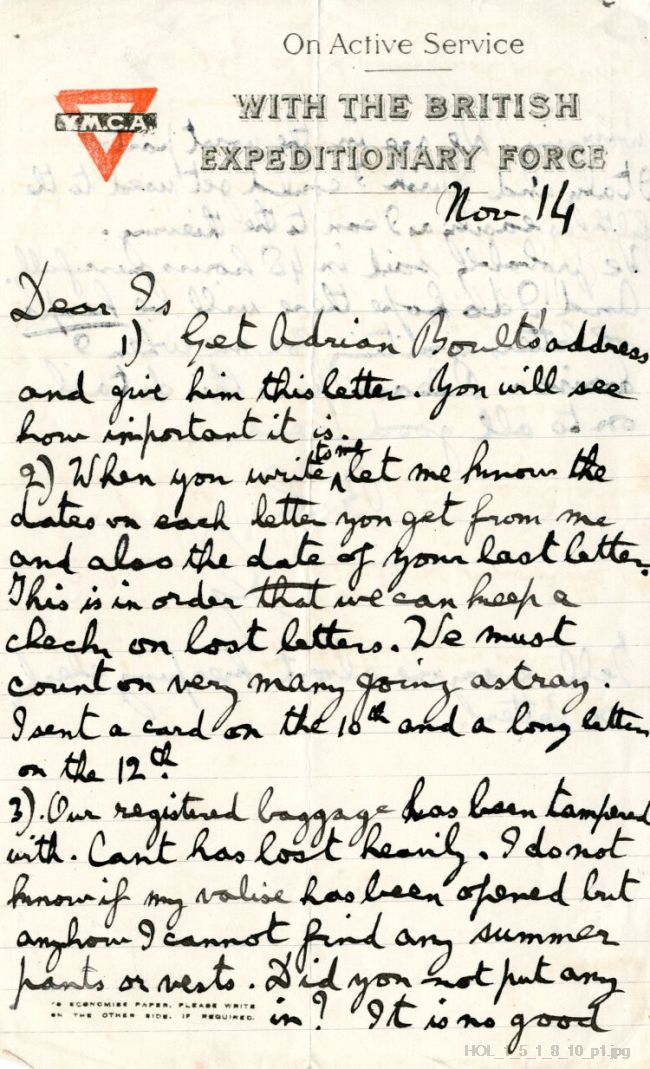 On Active Service
WITH THE BRITISH
EXPEDITIONARY FORCE
Y.M.C.A.
Nov '14
Dear Is
1) Get Adrian Boult's address
and give him this letter. You will see
how important it is.
to me
2) When you write ^ let me know the
dates on each letter you get from me
and also the date of your last letter.
This is in order that we can keep a
check on lost letters. We must
count on very many going astray.
I sent a card on the 10th and a long letter
on the 12th.
3). Our registered baggage has been tampered
with. Cant has lost heavily. I do not
know if my valise has been opened but
anyhow I cannot find any summer
pants or vests. Did you not put any
in? It is no good
TO ECONOMISE PAPER, PLEASE WRITE
ON THE OTHER SIDE, IF REQUIRED.
HOL_1_5_1_8_10_p1.jpg